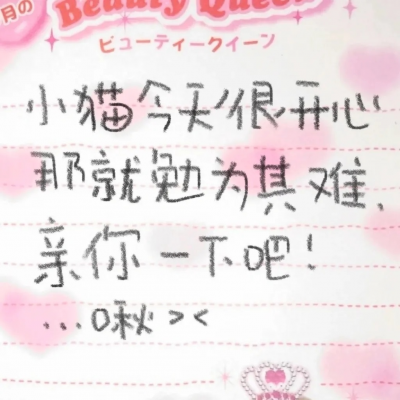 月の
Beauty Queen
ビューティークイーン
小猫今天很开心
那就勉为其难、
亲你一下吧！
...啾><